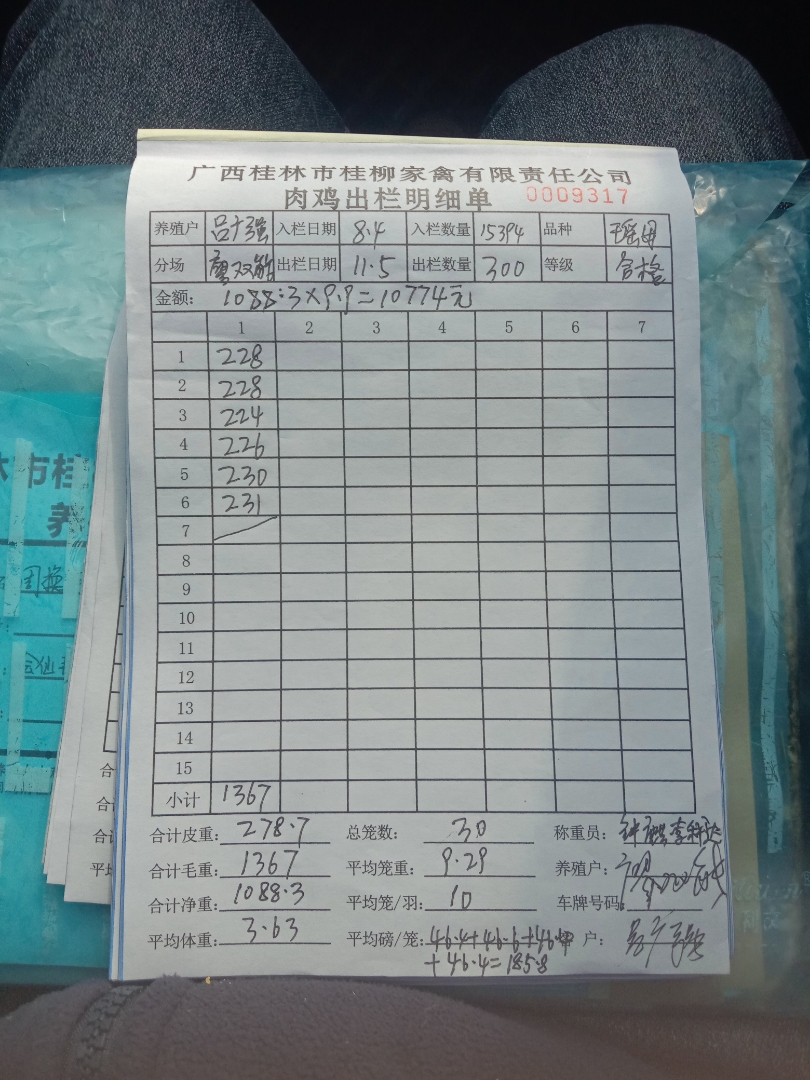 广西桂林市桂柳家禽有限责任公司
肉鸡出栏明细单 0009317
养殖户 入栏日期 8.4 入栏数量 15394 品种
分场 出栏日期 11.5 出栏数量 300 等级 合格
金额: 1088.3×9.9=10774元
1 2 3 4 5 6 7
1 228
2 228
3 224
4 226
5 230
6 231
7
8
9
10
11
12
13
14
15
小计 1367
合计皮重: 278.7 总笼数: 30 称重员:
合计毛重: 1367 平均笼重: 9.29 养殖户:
合计净重: 1088.3 平均笼/羽: 10 车牌号码:
平均体重: 3.63 平均磅/笼: 46.4+46.6+46.4 户:
+46.4=185.8
林市桂
养
合
合
合
平均